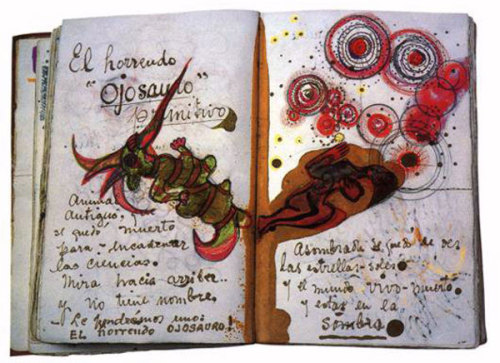 El horrendo
"OJOSAURO"
primitivo
Animal
Antiguo,
se quedó muerto
para encadenar
las ciencias.
Mira hacia arriba..
y no tiene nombre.
- Le pondremos uno:
EL horrendo OJOSAURO!
Asombrada se quedó de ver
las estrellas-soles
y el mundo vivo-muerto
y estar en la
sombra